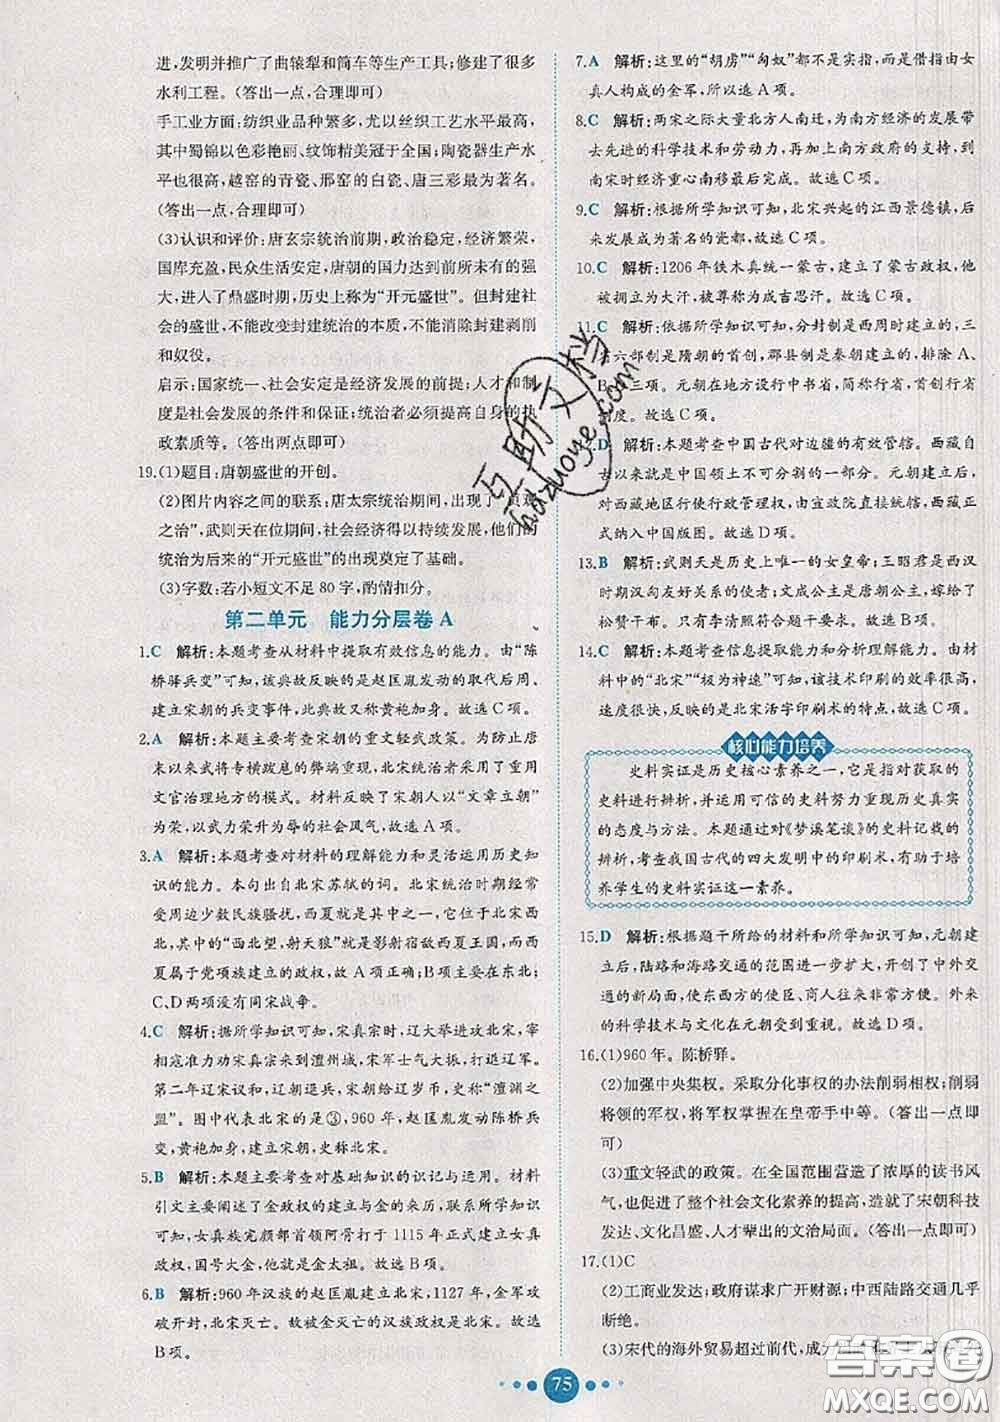 进,发明并推广了曲辕犁和筒车等生产工具;修建了很多
水利工程。(答出一点,合理即可)
手工业方面:纺织业品种繁多,尤以丝织工艺水平最高,
其中蜀锦以色彩艳丽、纹饰精美冠于全国;陶瓷器生产水
平也很高,越窑的青瓷、邢窑的白瓷、唐三彩最为著名。
(答出一点,合理即可)
(3)认识和评价:唐玄宗统治前期,政治稳定,经济繁荣,
国库充盈,民众生活安定,唐朝的国力达到前所未有的强
大,进入了鼎盛时期,历史上称为“开元盛世”。但封建社
会的盛世,不能改变封建统治的本质,不能消除封建剥削
和奴役。
启示:国家统一、社会安定是经济发展的前提;人才和制
度是社会发展的条件和保证;统治者必须提高自身的执
政素质等。(答出两点即可)
19.(1)题目:唐朝盛世的开创。
(2)图片内容之间的联系:唐太宗统治期间,出现了“贞观
之治”,武则天在位期间,社会经济得以持续发展,他们的
统治为后来的“开元盛世”的出现奠定了基础。
(3)字数:若小短文不足 80 字,酌情扣分。
第二单元 能力分层卷 A
1.C 解析:本题考查从材料中提取有效信息的能力。由“陈
桥驿兵变”可知,该典故反映的是赵匡胤发动的取代后周、
建立宋朝的兵变事件,此典故又称黄袍加身。故选C项。
2.A 解析:本题主要考查宋朝的重文轻武政策。为防止唐
末以来武将专横跋扈的弊端重现,北宋统治者采用了重用
文官治理地方的模式。材料反映了宋朝人以“文章立朝”
为荣,以武力荣升为辱的社会风气,故选A项。
3.A 解析:本题考查对材料的理解能力和灵活运用历史知
识的能力。本句出自北宋苏轼的词。北宋统治时期经
常受周边少数民族骚扰,可知这首词产生的时代背景与战
争有关。材料中的“西北望,射天狼”的方位在北宋西
北,符合的只有A项,主要反映了北宋同西夏的战争,西
夏属于党项族建立的政权,故A项正确;B项主要在东北;
C、D两项没有同宋战争。
4.C 解析:据所学知识可知,宋真宗时,辽大举进攻北宋,宰
相寇准力劝宋真宗来到澶州城,宋军士气大振,打退辽军。
第二年辽宋议和,辽朝退兵,宋朝给辽岁币,史称“澶渊之
盟”。图中代表北宋的是③,960 年,赵匡胤发动陈桥兵
变,黄袍加身,建立宋朝,史称北宋。
5.B 解析:本题主要考查对基础知识的识记与运用。材料
引文主要阐述了金政权的建立与金的来历,联系所学知识
可知,女真族完颜部首领阿骨打于 1115 年正式建立女真
政权,国号大金,他就是金太祖。故选B项。
6.B 解析:960 年汉族的赵匡胤建立北宋,1127 年,金军攻
破开封,北宋灭亡。故被金灭亡的汉族政权是北宋。故选
B项。
7.A 解析:这里的“胡虏”“匈奴”都不是实指,而是借指由女
真人构成的金军,所以选A项。
8.C 解析:两宋之际大量北方人南迁,为南方经济的发展带
去先进的科学技术和劳动力,再加上南方政府的支持,到
南宋时经济重心南移最后完成。故选C项。
9.C 解析:根据所学知识可知,北宋兴起的江西景德镇,后
来发展成为著名的瓷都,故选C项。
10.C 解析:1206 年铁木真统一蒙古,建立了蒙古政权,他
被拥立为大汗,被尊称为成吉思汗。故选C项。
11.C 解析:依据所学知识可知,分封制是西周时建立的,三
省六部制是隋朝的首创,郡县制是秦朝建立的,排除A、
B、三项。元朝在地方设行中书省,简称行省,首创行省
制度。故选C项。
D 解析:本题考查中国古代对边疆的有效管辖。西藏自
古以来就是中国领土不可分割的一部分。元朝建立后,
对西藏地区行使行政管理权,由宣政院直接管辖,西藏正
式纳入中国版图。故选D项。
13.B 解析:武则天是历史上唯一的女皇帝;王昭君是西汉
时期汉向匈奴友好关系的使者;文成公主是唐朝公主,嫁给了
松赞干布。只有李清照符合题干要求。故选B项。
14.C 解析:本题考查信息提取能力和分析理解能力。由材
料中的“北宋”“极为神速”可知,该技术印刷的效率很高、
速度很快,反映的是北宋活字印刷术的特点,故选C项。
核心能力培养
史料实证是历史核心素养之一,它是指对获取的
史料进行辨析,并运用可信的史料努力重现历史真实
的态度与方法。本题通过对《梦溪笔谈》的史料记载的
辨析,考查我国古代的四大发明中的印刷术,有助于培
养学生的史料实证这一素养。
15.D 解析:根据题干所给的材料和所学知识可知,元朝建
立后,陆路和海路交通的范围进一步扩大,开创了中外交
通的新局面,使东西方的使臣、商人往来非常方便。外来
的科学技术与文化在元朝受到重视。故选D项。
16.(1)960 年。陈桥驿。
(2)加强中央集权。采取分化事权的办法削弱相权,削弱
将领的军权,将军权掌握在皇帝手中等。(答出一点即
可)
(3)重文轻武的政策。在全国范围营造了浓厚的读书风
气,也促进了整个社会文化素养的提高,造就了宋朝科技
发达、文化昌盛、人才辈出的文治局面。(答出一点即可)
17.(1)C
(2)工商业发达;政府谋求广开财源;中西陆路交通几乎
断绝。
(3)宋代的海外贸易超过前代,成
75
互助文档
huzuoye.com
答案圈
MXQE.COM